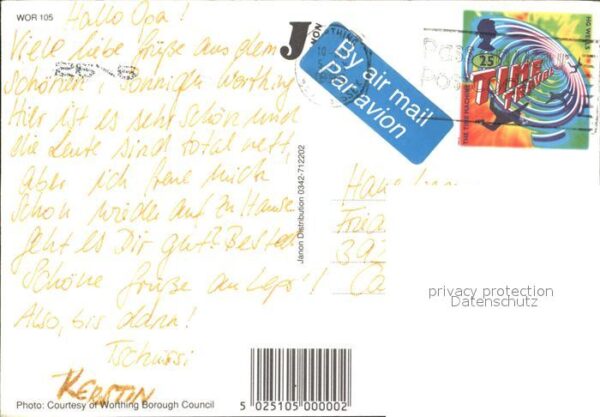 WOR 105
Hallo Opa!
Viele liebe Grüße aus dem
schönen, sonnigen Worthing
Hier ist es sehr schön und
die Leute sind total nett,
aber ich freue mich
schon wieder auf zu Hause
geht es Dir gut? Bestell
Schöne Grüße an
Also, bis dann!
Tschussi
KERSTIN
Photo: Courtesy of Worthing Borough Council
J
Janon Distribution 0342-712202
By air mail
Par avion
25
TIME
TRAVEL
THE TIME MACHINE
HG WELLS
privacy protection
Datenschutz
5 025105 000002